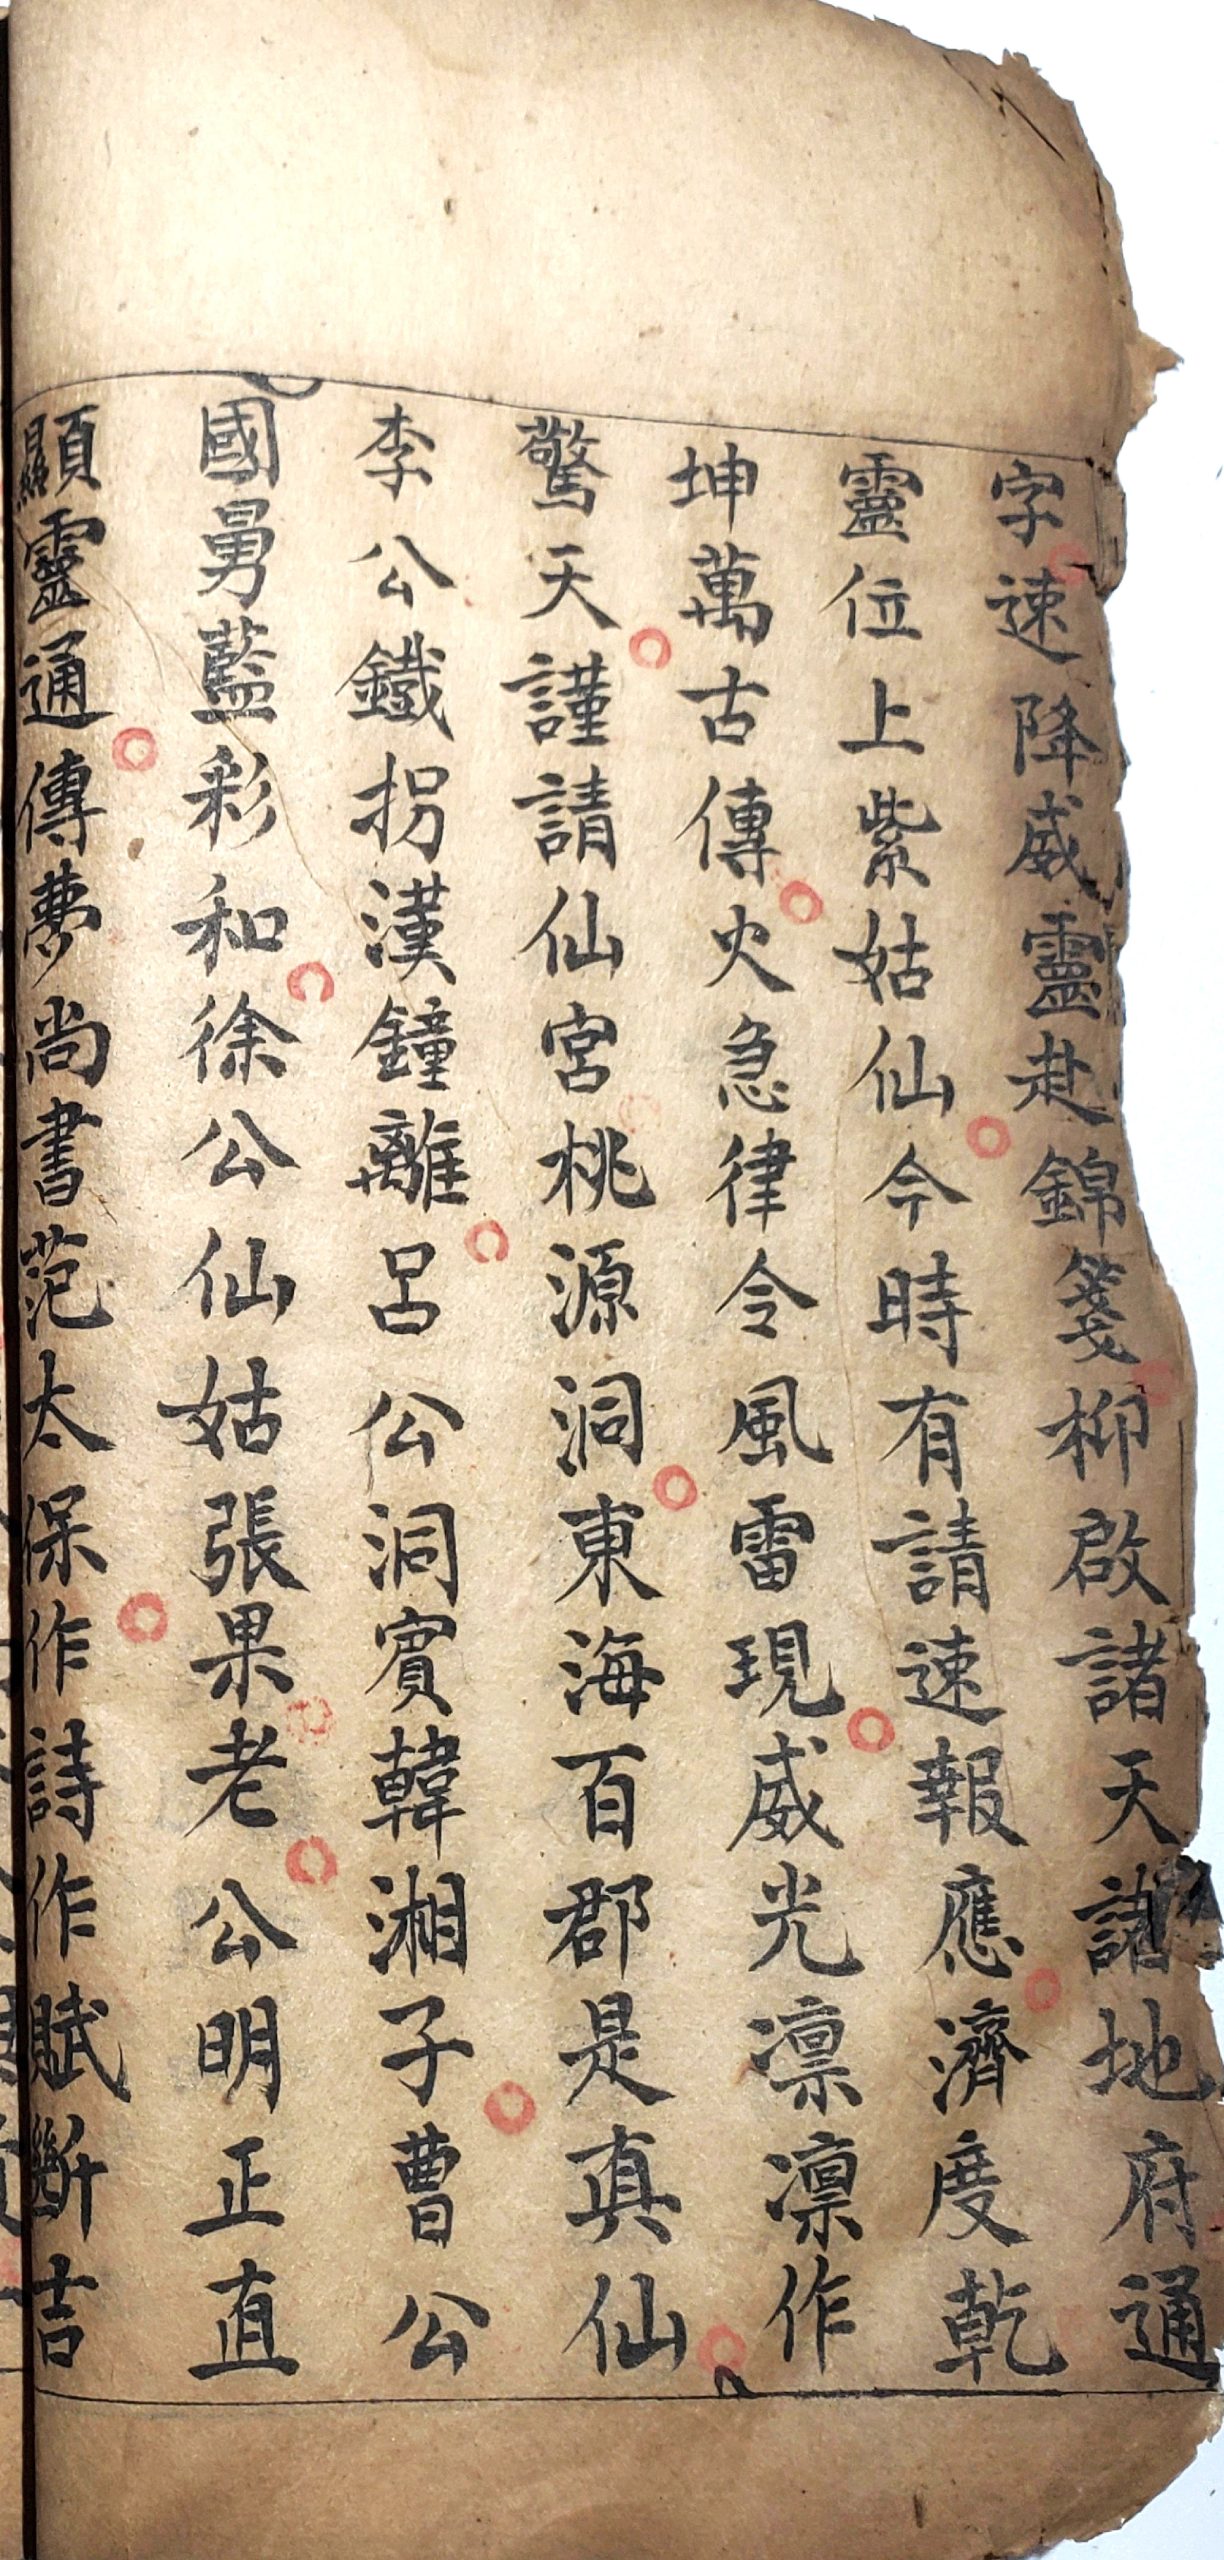 字速降威靈赴錦箋柳啟諸天諸地府通
靈位上紫姑仙今時有請速報應濟度乾
坤萬古傳火急律令風雷現威光凛凛作
驚天謹請仙宮桃源洞東海百郡是真仙
李公鐵拐漢鐘離呂公洞賓韓湘子曹公
國舅藍彩和徐公仙姑張果老公明正直
顯靈通傳夢尚書范太保作詩作賦斷吉